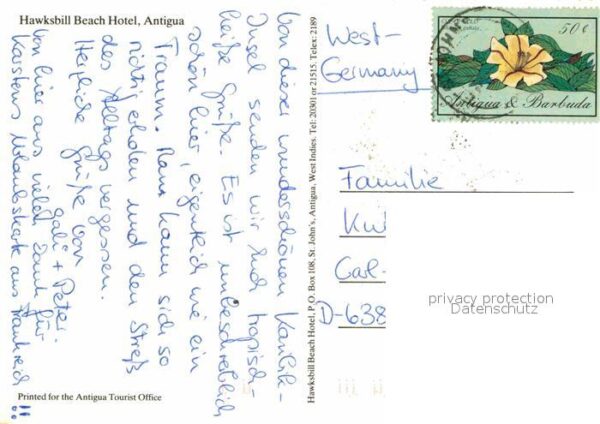 Hawksbill Beach Hotel, Antigua
Von dieser wunderschönen Karibik-
Insel senden wir Euch tropisch-
heiße Grüße. Es ist unbeschreiblich
schön hier, eigentlich wie ein
Traum. Man kann sich so
richtig erholen und den Streß
des Alltags vergessen.
Herzliche Grüße von
Gabi + Peter
Von hier aus vielen Dank für
Karstens Urlaubskarte aus Frankreich
!!
Printed for the Antigua Tourist Office
Hawksbill Beach Hotel, P.O. Box 108, St. John's, Antigua, West Indies. Tel: 20301 or 21515. Telex: 2189
West-
Germany
50¢
Antigua & Barbuda
Familie
Kw
Carl-
D-638
privacy protection
Datenschutz